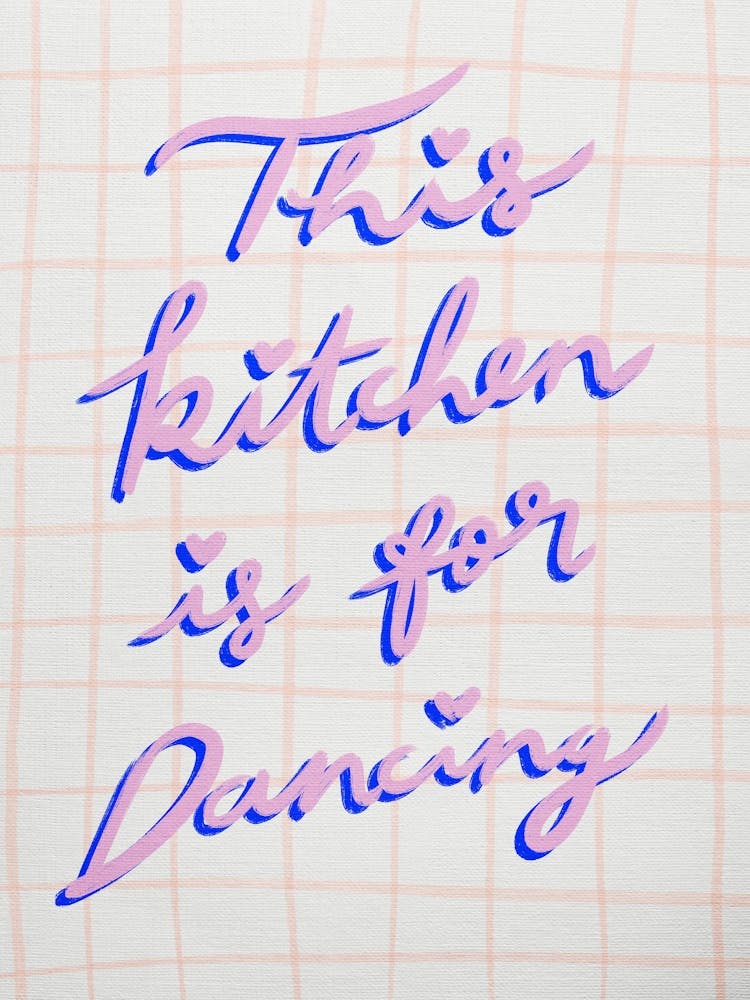 This
kitchen
is for
Dancing